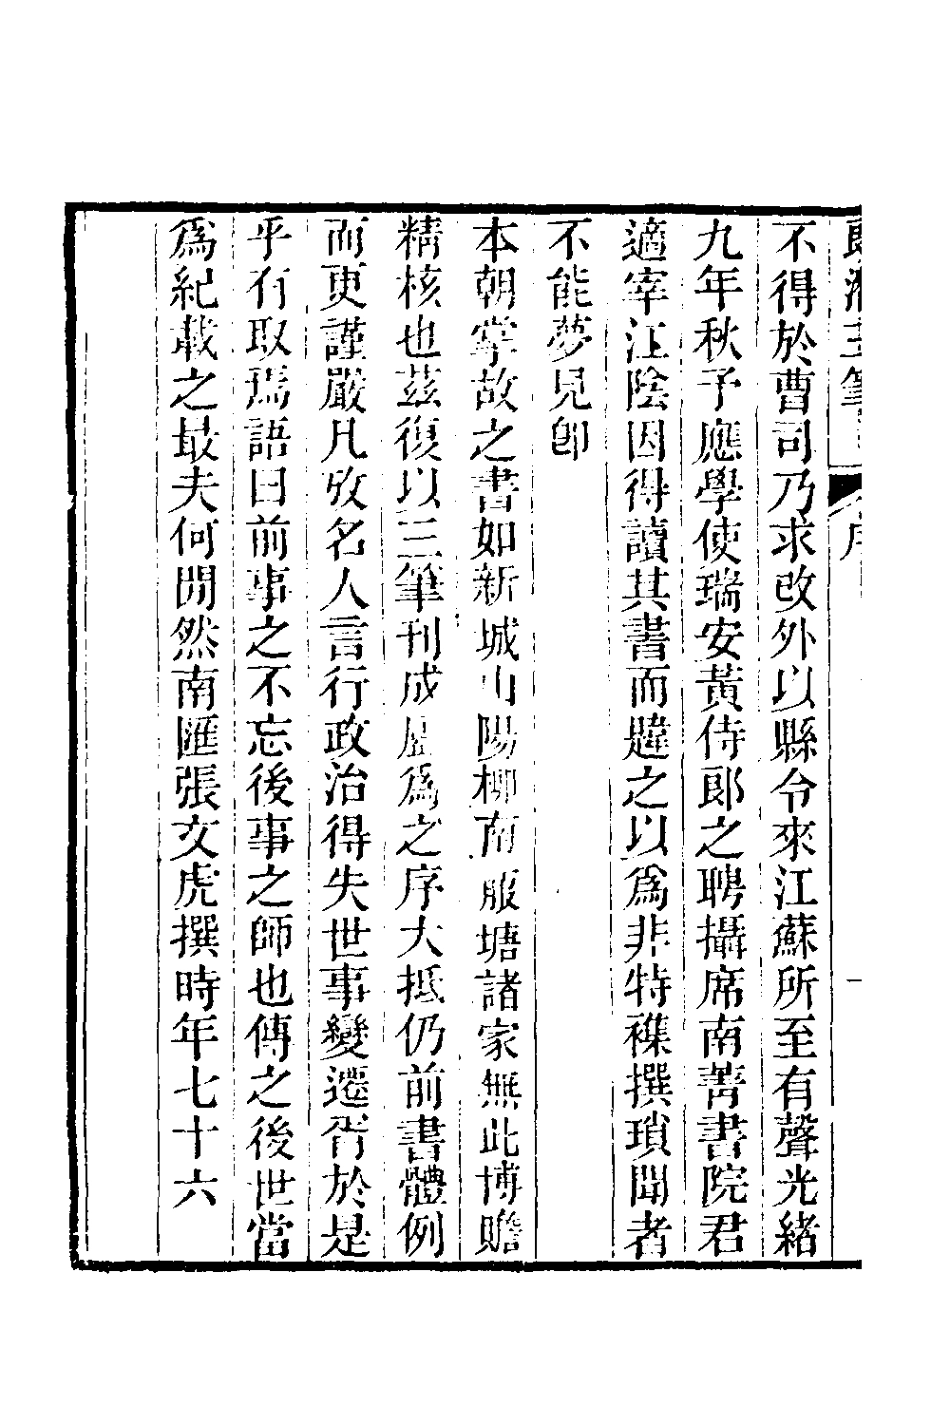 郎潛三筆 序
不得於曹司乃求改外以縣令來江蘇所至有聲光緒
九年秋予應學使瑞安黃侍郎之聘攝席南菁書院君
適宰江陰因得讀其書而韙之以爲非特襍撰瑣聞者
不能夢見卽
本朝掌故之書如新城山陽柳南服塘諸家無此博贍
精核也茲復以三筆刊成屬爲之序大抵仍前書體例
而更謹嚴凡攷名人言行政治得失世事變遷胥於是
乎有取焉語曰前事之不忘後事之師也傳之後世當
爲紀載之最夫何閒然南匯張文虎撰時年七十六